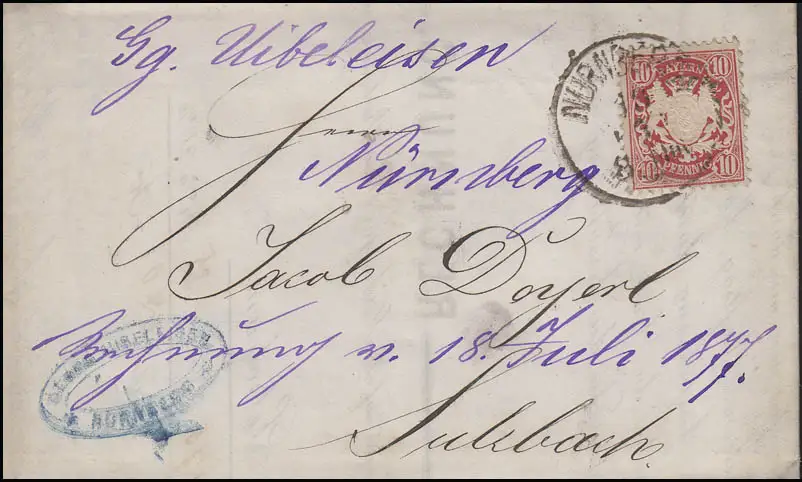 Gg. Uibeleisen
10 10
BAYERN
10 PFENNIG 10
Herrn
Nürnberg
Jacob Doyerl
Rechnung v. 18. Juli 1877.
NÜRNBERG
Sulzbach
RECHNUNG